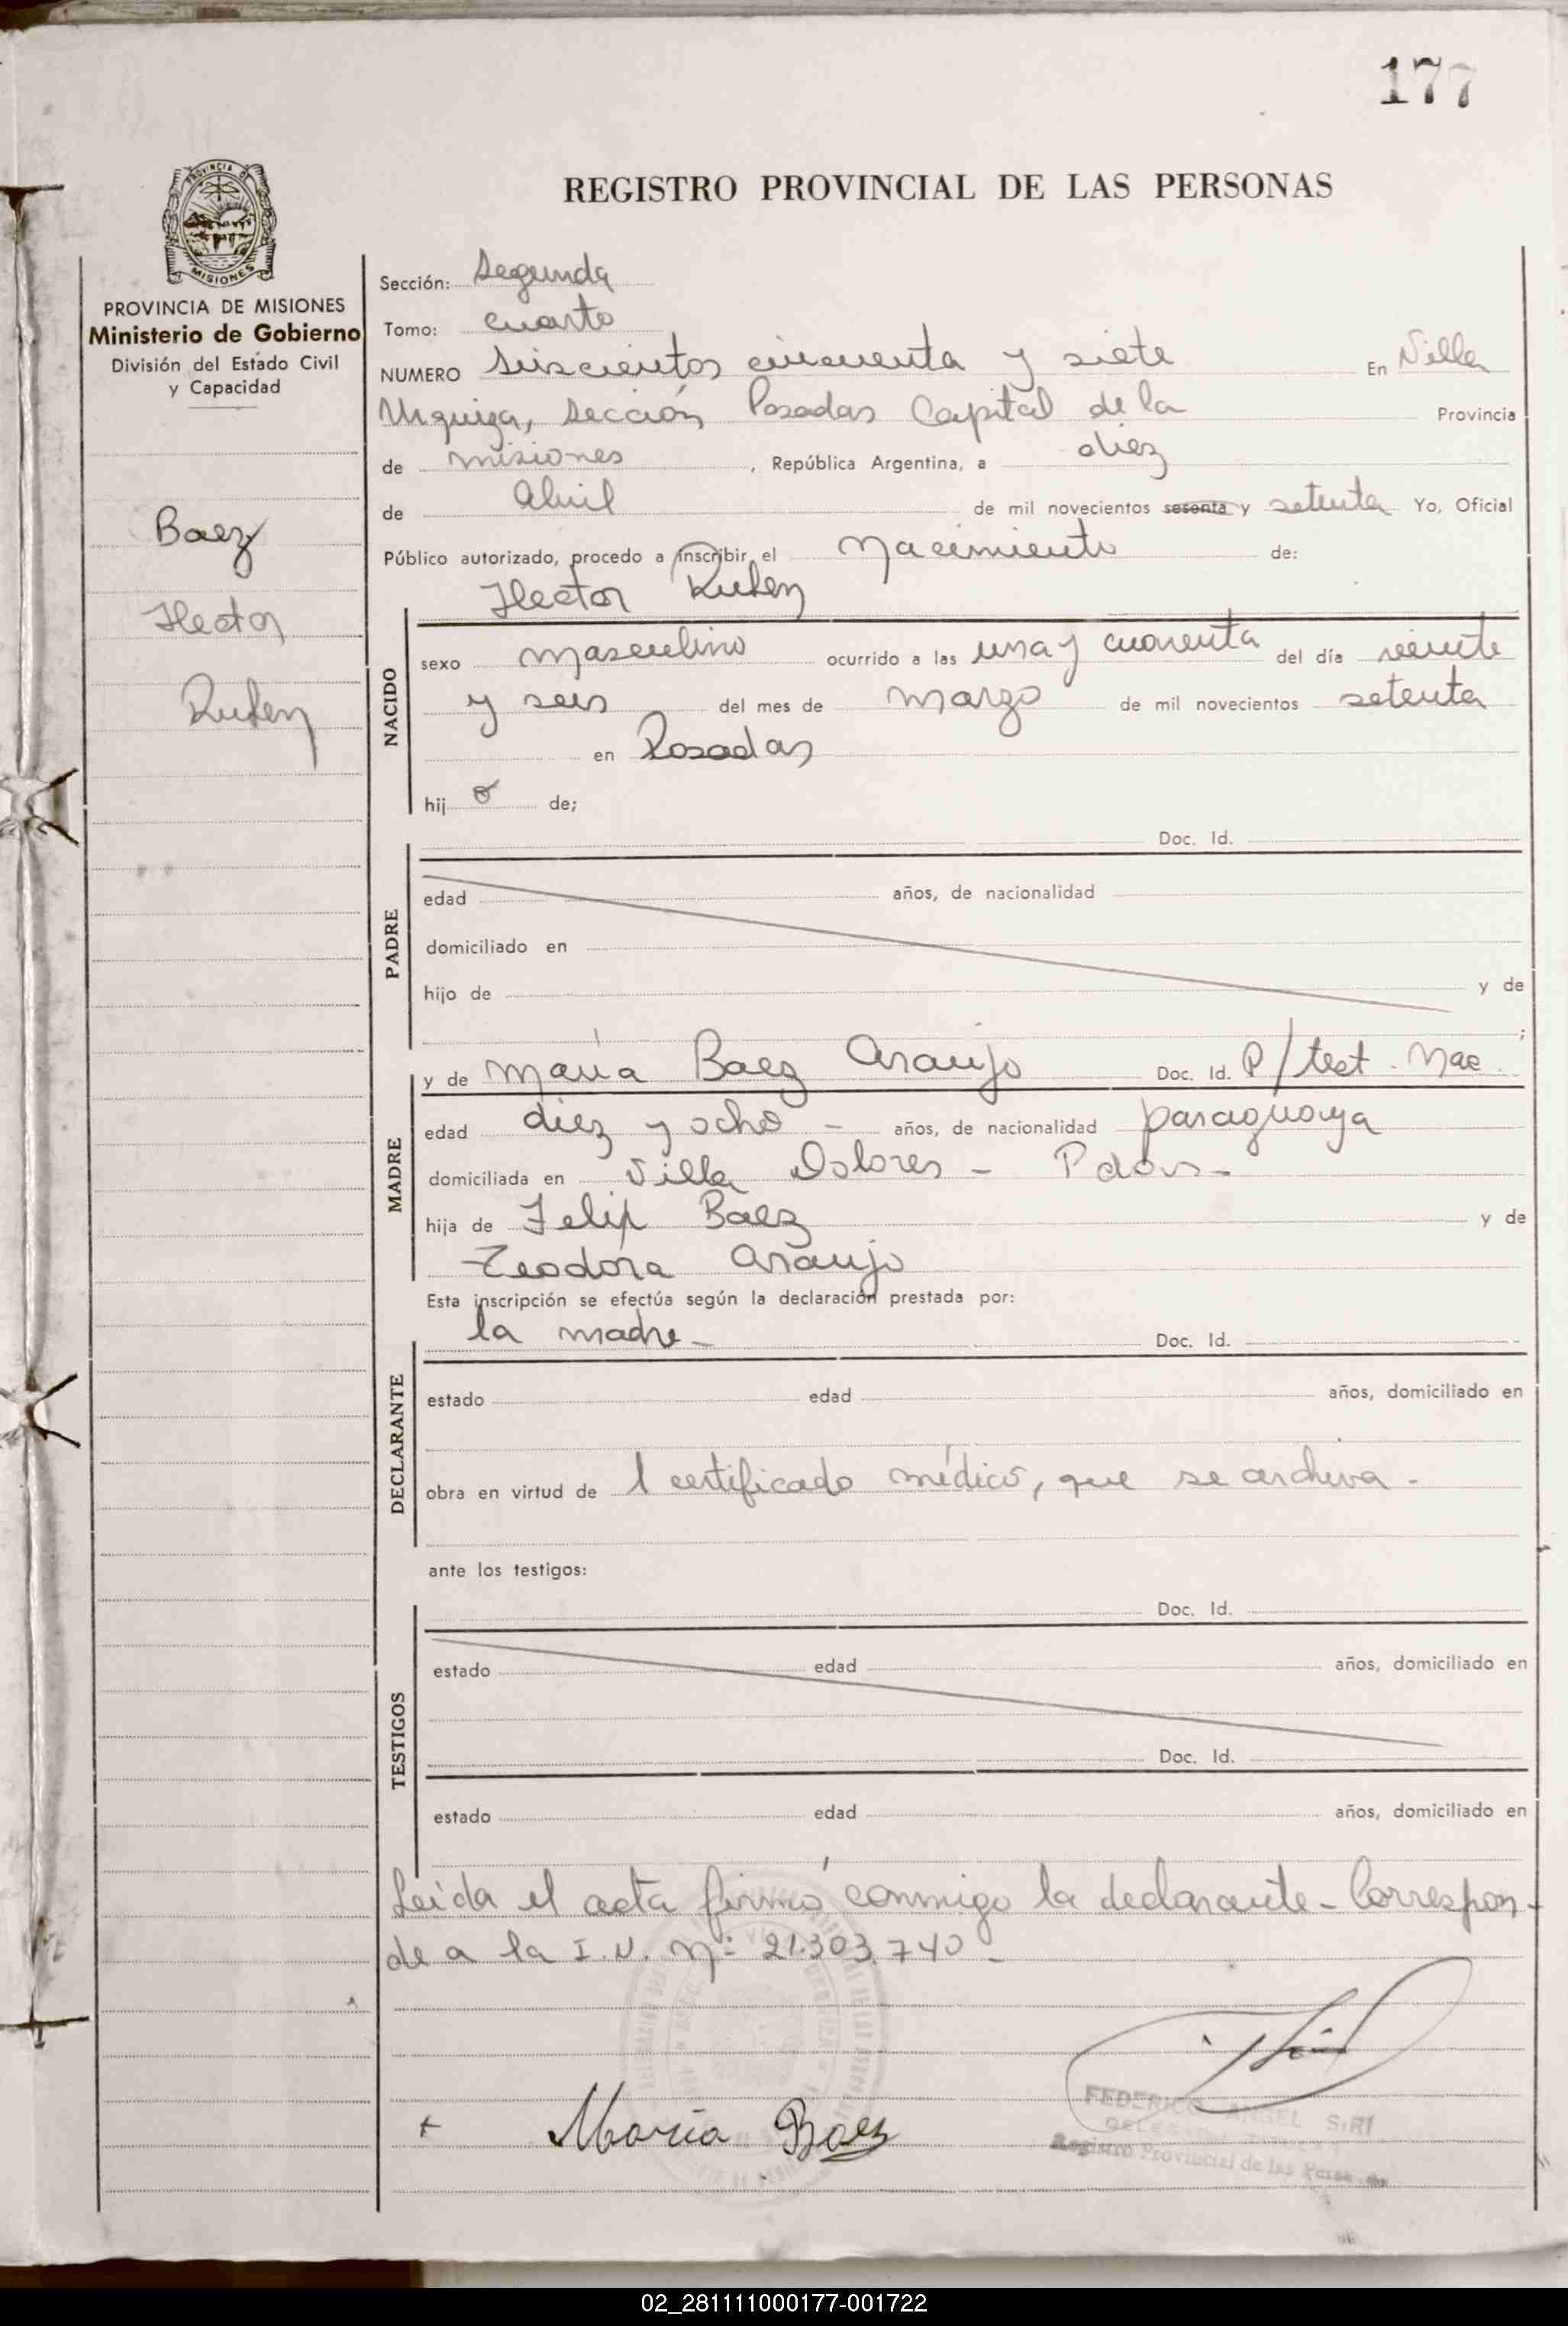 177
REGISTRO PROVINCIAL DE LAS PERSONAS
PROVINCIA DE MISIONES
PROVINCIA DE MISIONES
Ministerio de Gobierno
División del Estado Civil
y Capacidad
Baez
Hector
Ruben
Sección: Segunda
Tomo: cuarto
NUMERO Seiscientos cincuenta y siete En Villa
Urquiza, Sección Posadas Capital de la Provincia
de misiones, República Argentina, a diez
de Abril de mil novecientos sesenta y setenta Yo, Oficial
Público autorizado, procedo a inscribir el Nacimiento de:
Hector Ruben
NACIDO
sexo masculino ocurrido a las una y cuarenta del día veinte
y seis del mes de marzo de mil novecientos setenta
en Posadas
hij o de;
PADRE
Doc. Id.
edad años, de nacionalidad
domiciliado en
hijo de y de
;
MADRE
y de María Baez Araujo Doc. Id. P/test. Nac.
edad diez y ocho - años, de nacionalidad paraguaya
domiciliada en Villa Dolores - Pdas -
hija de Felix Baez y de
Teodora Araujo
Esta inscripción se efectúa según la declaración prestada por:
DECLARANTE
la madre - Doc. Id.
estado edad años, domiciliado en
obra en virtud de 1 certificado médico, que se archiva -
ante los testigos:
TESTIGOS
Doc. Id.
estado edad años, domiciliado en
Doc. Id.
estado edad años, domiciliado en
Leída el acta firmó conmigo la declarante - Correspon-
de a la I.N. Nº: 21.303.740 -
María Baez
FEDERICO ANGEL SIRI
Registro Provincial de las Personas
02_281111000177-001722